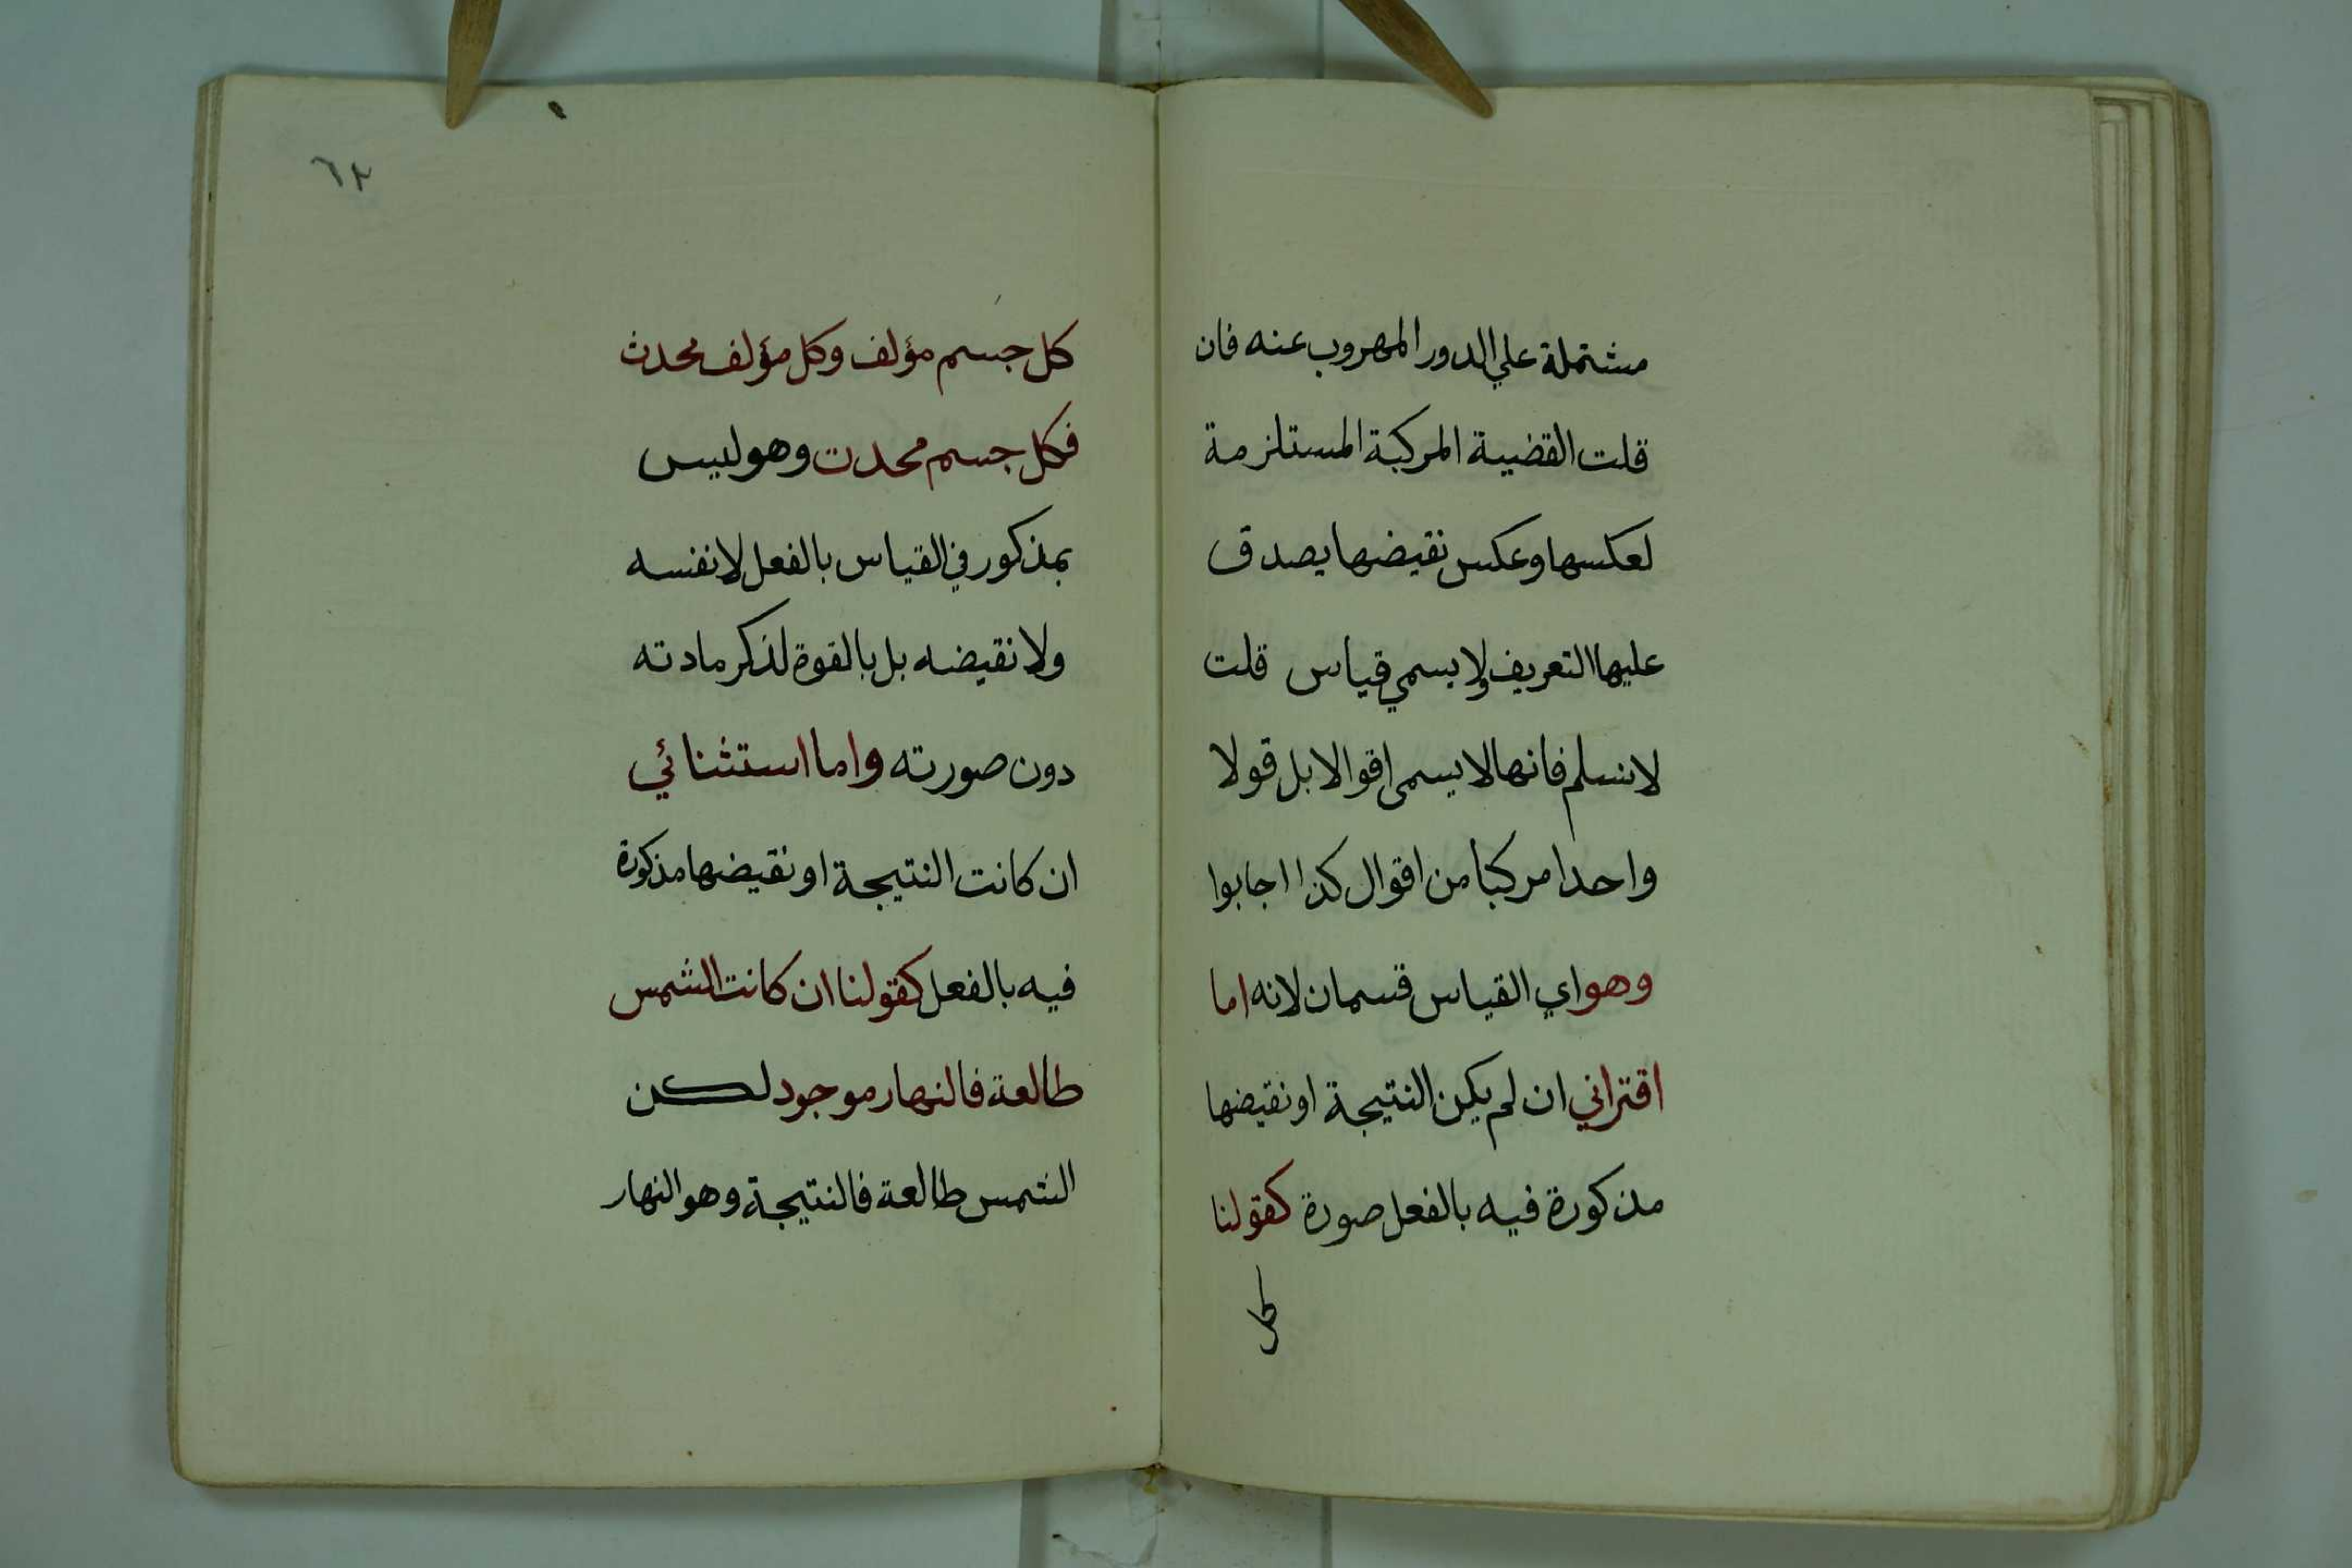 مشتملة علي الدور المهروب عنه فان
قلت القضية المركبة المستلزمة
لعكسها وعكس نقيضها يصدق
عليها التعريف ولا يسمي قياس قلت
لا نسلم فانها لا يسمى اقوالا بل قولا
واحدا مركبا من اقوال كذا اجابوا
وهو اي القياس قسمان لانه اما
اقتراني ان لم يكن النتيجة او نقيضها
مذكورة فيه بالفعل صورة كقولنا
كل
٦٢
كل جسم مؤلف وكل مؤلف محدث
فكل جسم محدث وهو ليس
بمذكور في القياس بالفعل لا نفسه
ولا نقيضه بل بالقوة لذكر مادته
دون صورته واما استثنائي
ان كانت النتيجة او نقيضها مذكورة
فيه بالفعل كقولنا ان كانت الشمس
طالعة فالنهار موجود لكن
الشمس طالعة فالنتيجة وهو النهار